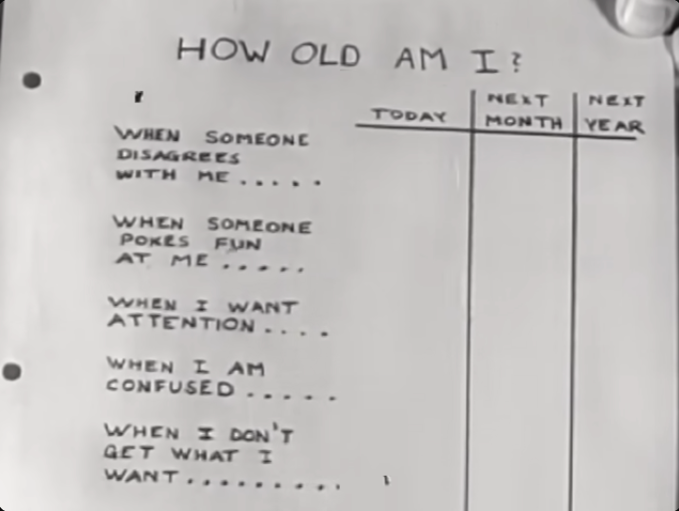 HOW OLD AM I?
TODAY
NEXT
MONTH
NEXT
YEAR
WHEN SOMEONE
DISAGREES
WITH ME.....
WHEN SOMEONE
POKES FUN
AT ME.....
WHEN I WANT
ATTENTION....
WHEN I AM
CONFUSED.....
WHEN I DON'T
GET WHAT I
WANT.........